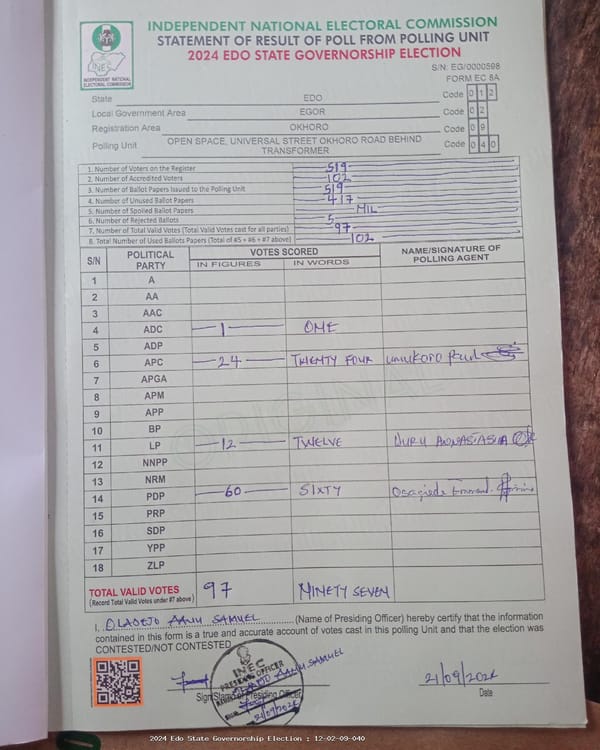 INDEPENDENT NATIONAL ELECTORAL COMMISSION
STATEMENT OF RESULT OF POLL FROM POLLING UNIT
2024 EDO STATE GOVERNORSHIP ELECTION
INEC
INDEPENDENT NATIONAL ELECTORAL COMMISSION
S/N: EG/0000598
FORM EC 8A
State EDO Code 0 1 2
Local Government Area EGOR Code 0 2
Registration Area OKHORO Code 0 9
Polling Unit OPEN SPACE, UNIVERSAL STREET OKHORO ROAD BEHIND TRANSFORMER Code 0 4 0
1. Number of Voters on the Register 519
2. Number of Accredited Voters 102
3. Number of Ballot Papers Issued to the Polling Unit 519
4. Number of Unused Ballot Papers 417
5. Number of Spoiled Ballot Papers NIL
6. Number of Rejected Ballots 5
7. Number of Total Valid Votes (Total Valid Votes cast for all parties) 97
8. Total Number of Used Ballots Papers (Total of #5 + #6 + #7 above) 102
S/N POLITICAL PARTY VOTES SCORED NAME/SIGNATURE OF POLLING AGENT
IN FIGURES IN WORDS
1 A
2 AA
3 AAC
4 ADC 1 ONE
5 ADP
6 APC 24 TWENTY FOUR
7 APGA
8 APM
9 APP
10 BP
11 LP 12 TWELVE
12 NNPP
13 NRM
14 PDP 60 SIXTY
15 PRP
16 SDP
17 YPP
18 ZLP
TOTAL VALID VOTES 97 NINETY SEVEN
(Record Total Valid Votes under #7 above)
I, OLADEJO SAMUEL (Name of Presiding Officer) hereby certify that the information
contained in this form is a true and accurate account of votes cast in this polling Unit and that the election was
CONTESTED/NOT CONTESTED
INEC
PRESIDING OFFICER
SAMUEL
21/09/2024
Sign/Stamp of Presiding Officer
21/09/2024
Date
2024 Edo State Governorship Election : 12-02-09-040